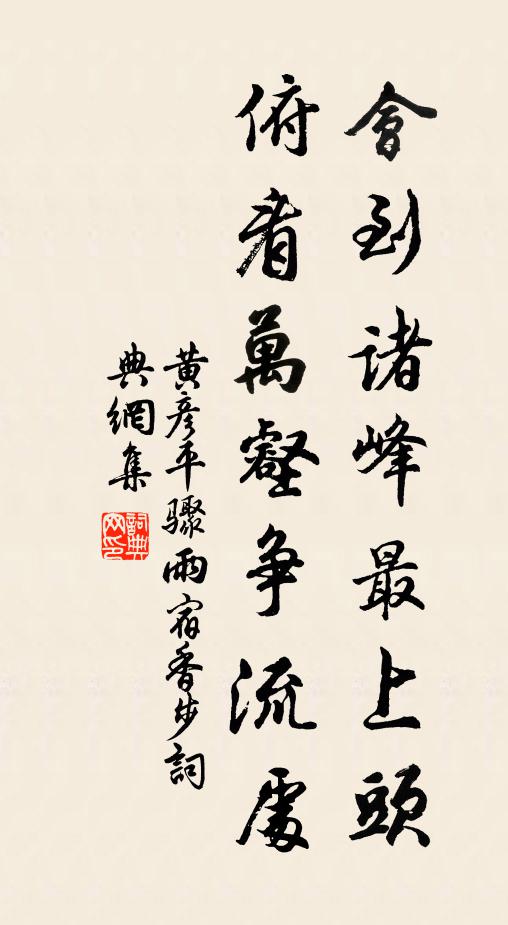 會到諸峰最上頭
俯看萬壑爭流處
黃彥平驟雨宿香步詞
典網集
詞典
網印